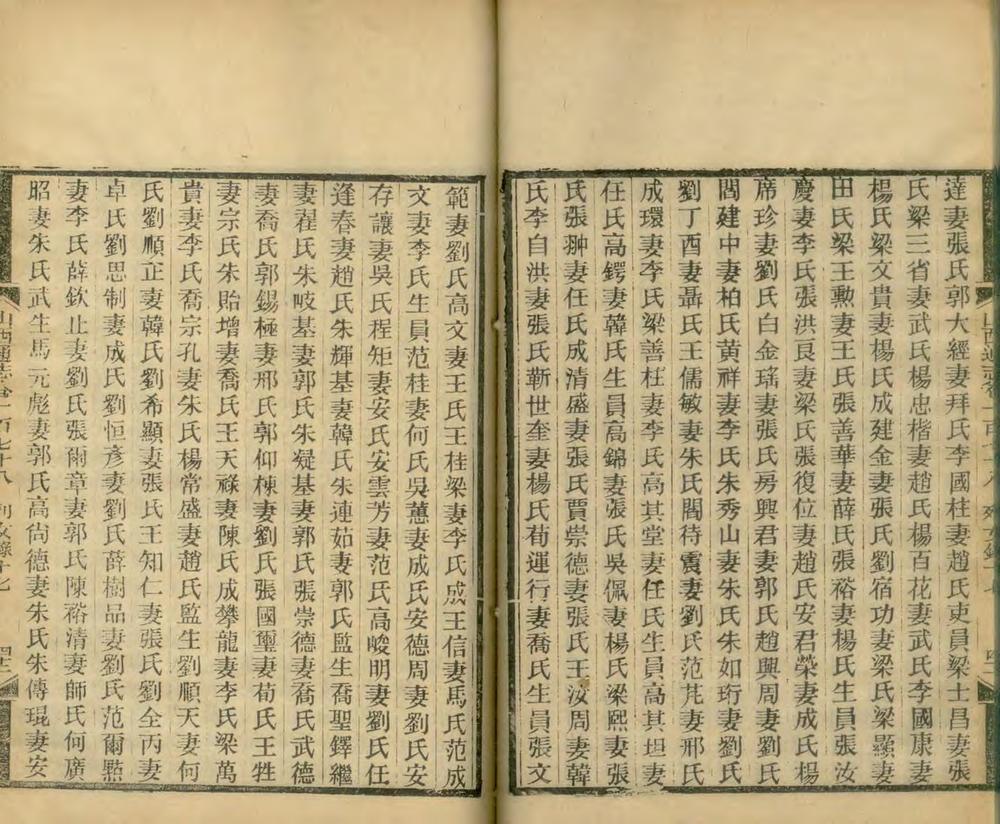 達妻張氏郭大經妻拜氏李國柱妻趙氏吏員梁士昌妻張
氏梁三省妻武氏楊忠楷妻趙氏楊百花妻武氏李國康妻
楊氏梁文貴妻楊氏成建金妻張氏劉宿功妻梁氏梁顯妻
田氏梁王勲妻王氏張善華妻薛氏張裕妻楊氏生員張汝
慶妻李氏張洪艮妻梁氏張復位妻趙氏安君榮妻成氏楊
席珍妻劉氏白金瑤妻張氏房興君妻郭氏趙興周妻劉氏
閻建中妻柏氏黃祥妻李氏朱秀山妻朱氏朱如珩妻劉氏
劉丁酉妻聶氏王儒敏妻朱氏閻待震妻劉氏范芃妻邢氏
成環妻李氏梁善柱妻李氏高其堂妻任氏生員高其坦妻
任氏高鍔妻韓氏生員高錦妻張氏吳佩妻楊氏梁熙妻張
氏張翀妻任氏成清盛妻張氏賈崇德妻張氏王汝周妻韓
氏李自洪妻張氏靳世奎妻楊氏荀運行妻喬氏生員張文
山西通志卷一百七十八 列女錄十七
範妻劉氏高文妻王氏王桂梁妻李氏成王信妻馬氏范成
文妻李氏生員范桂妻何氏吳蕙妻成氏安德周妻劉氏安
存讓妻吳氏程矩妻安氏安雲芳妻范氏高峻明妻劉氏任
逢春妻趙氏朱輝基妻韓氏朱連茹妻郭氏監生喬聖鐸繼
妻程氏朱岐基妻郭氏朱凝基妻郭氏張崇德妻喬氏武德
妻喬氏郭錫極妻邢氏郭仰棟妻劉氏張國璽妻荀氏王牲
妻宗氏朱貽增妻喬氏王天祿妻陳氏成攀龍妻李氏梁萬
貴妻李氏喬宗孔妻朱氏楊常盛妻趙氏監生劉順天妻何
氏劉順正妻韓氏劉希顯妻張氏王知仁妻張氏劉全丙妻
卓氏劉思制妻成氏劉恒彥妻劉氏薛樹品妻劉氏范爾㸃
妻李氏薛欽止妻劉氏張爾章妻郭氏陳裕清妻師氏何廣
昭妻朱氏武生馬元彪妻郭氏高尚德妻朱氏朱傳琨妻安
山西通志卷一百七十八 列女錄十七